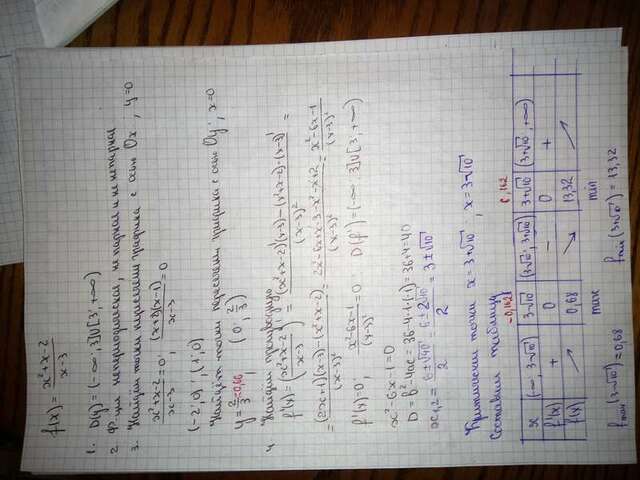 f(x) = (x²+x-2)/(x-3)
1. D(y) = (-∞; 3]∪[3; +∞)
2. Ф-ция непериодическая, не парная и не непарная
3. Найдём точки пересечения графика с осью Ox, y=0
(x²+x-2)/(x-3) = 0; (x+2)(x-1)/(x-3) = 0
(-2; 0); (1; 0)
Найдём точки пересечения графика с осью Oy; x=0
y = 2/3 ≈ 0,66; (0; 2/3)
4. Найдём производную
f'(x) = ((x²+x-2)/(x-3))' = ((x²+x-2)'(x-3) - (x²+x-2)·(x-3)')/(x-3)² =
= ((2x+1)(x-3) - (x²+x-2))/(x-3)² = (2x²-6x+x-3-x²-x+2)/(x-3)² = (x²-6x-1)/(x-3)²
f'(x)=0; (x²-6x-1)/(x-3)² = 0; D(f') = (-∞; 3]∪[3; +∞)
x²-6x-1=0
D = b²-4ac = 36-4·1·(-1) = 36+4=40
x₁,₂ = (6±√40)/2 = (6±2√10)/2 = 3±√10
Критические точки x = 3+√10; x = 3-√10
Составим таблицу
-0,162 6,162
x (-∞; 3-√10) 3-√10 (3-√10; 3+√10) 3+√10 (3+√10; +∞)
f'(x) + 0 - 0 +
f(x) ↗ 0,68 ↘ 13,32 ↗
max min
fmax(3-√10) = 0,68 fmin(3+√10) = 13,32